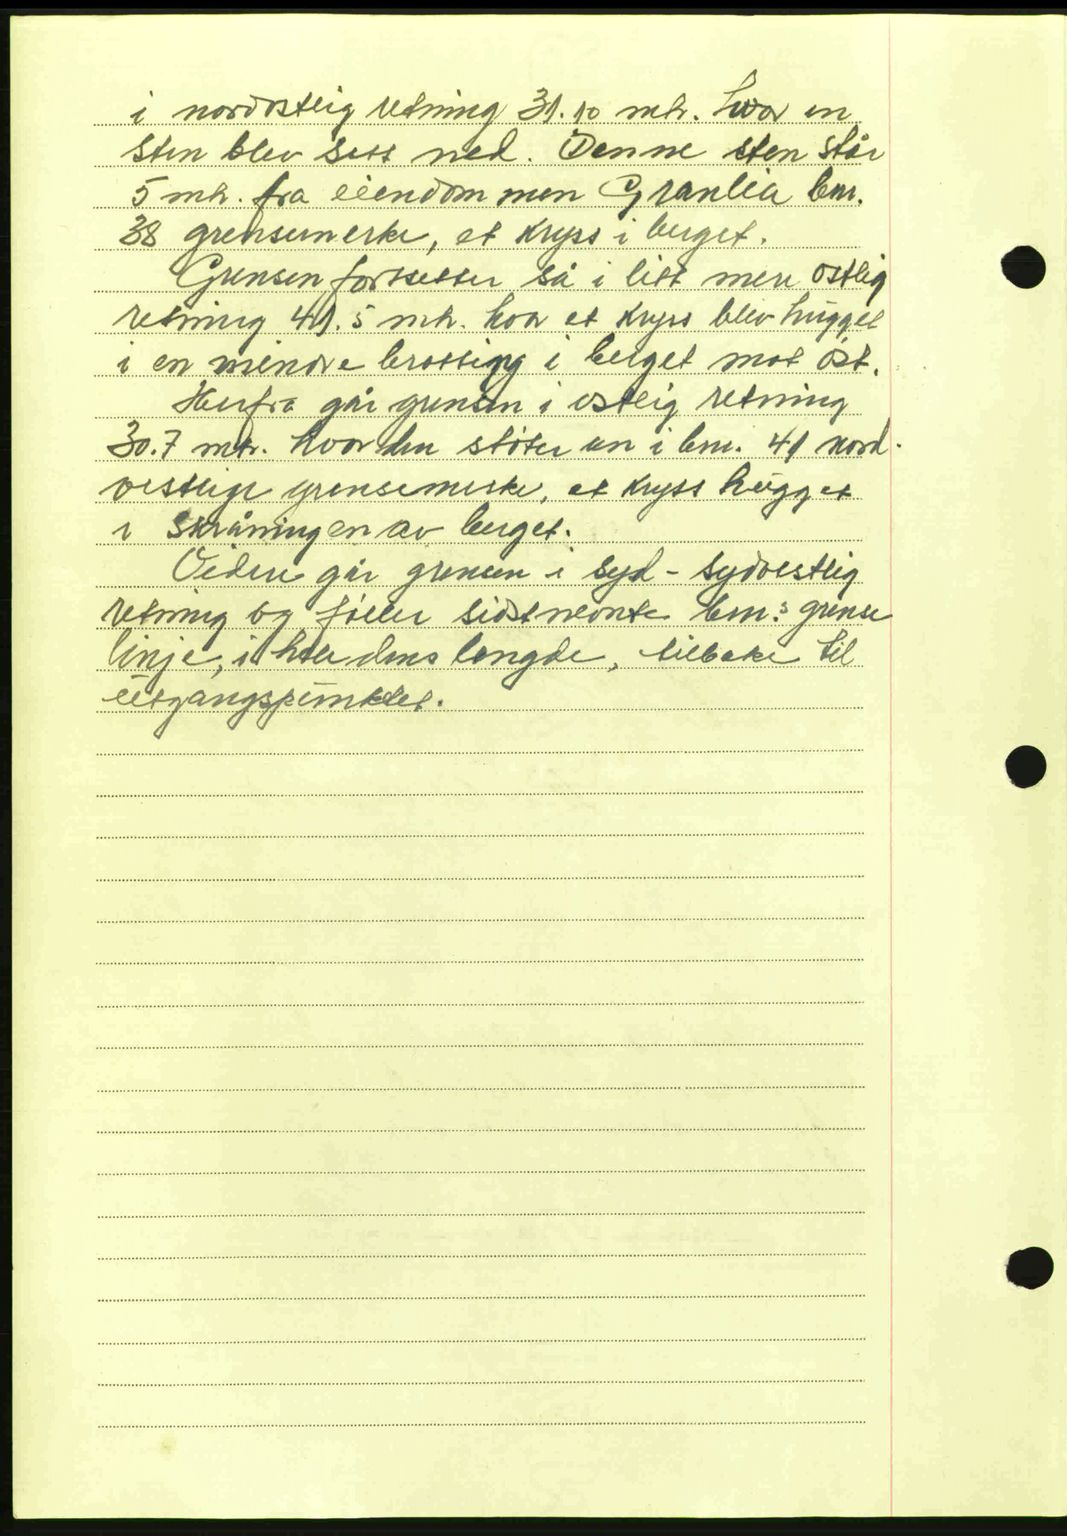 i nordostlig retning 31.10 mtr. hvor en
sten blev satt ned. Denne sten står
5 mtr. fra eiendommen Granlia bnr.
38 grensemerke, et kryss i berget.
Grensen fortsetter så i litt mer ostlig
retning 41.5 mtr. hvor et kryss blev hugget
i en mindre bratting i berget mot øst.
Herfra går grensen i ostlig retning
30.7 mtr. hvor den støter an i bnr. 41 nord-
vestlige grensemerke, et kryss hugget
i skråningen av berget.
Videre går grensen i syd-sydvestlig
retning og følger sidstnevnte bnr:s grense
linje, i hele dens lengde, tilbake til
utgangspunktet.